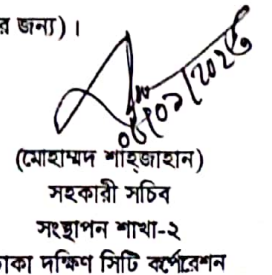 র জন্য)।
(মোহাম্মদ শাহজাহান)
সহকারী সচিব
সংস্থাপন শাখা-২
াকা দক্ষিণ সিটি কর্পোরেশন